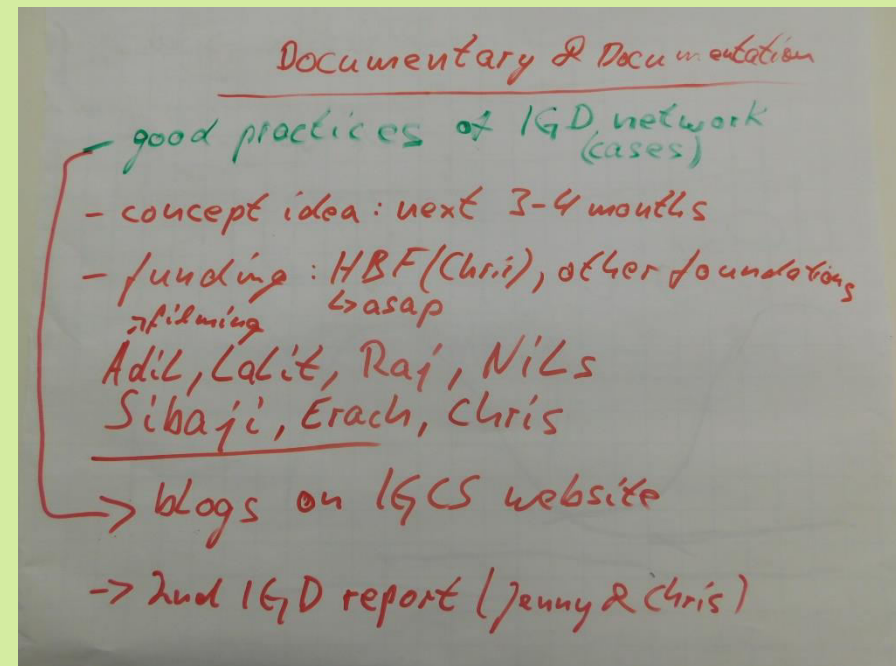 Documentary & Documentation
- good practices of IGD network
(cases)
- concept idea: next 3-4 months
- funding: HBF (Chris), other foundations
↳ asap
↗ filming
Adil, Lalit, Raj, Nils
Sibaji, Erach, Chris
-> blogs on IGCS website
-> 2nd IGD report (Jenny & Chris)